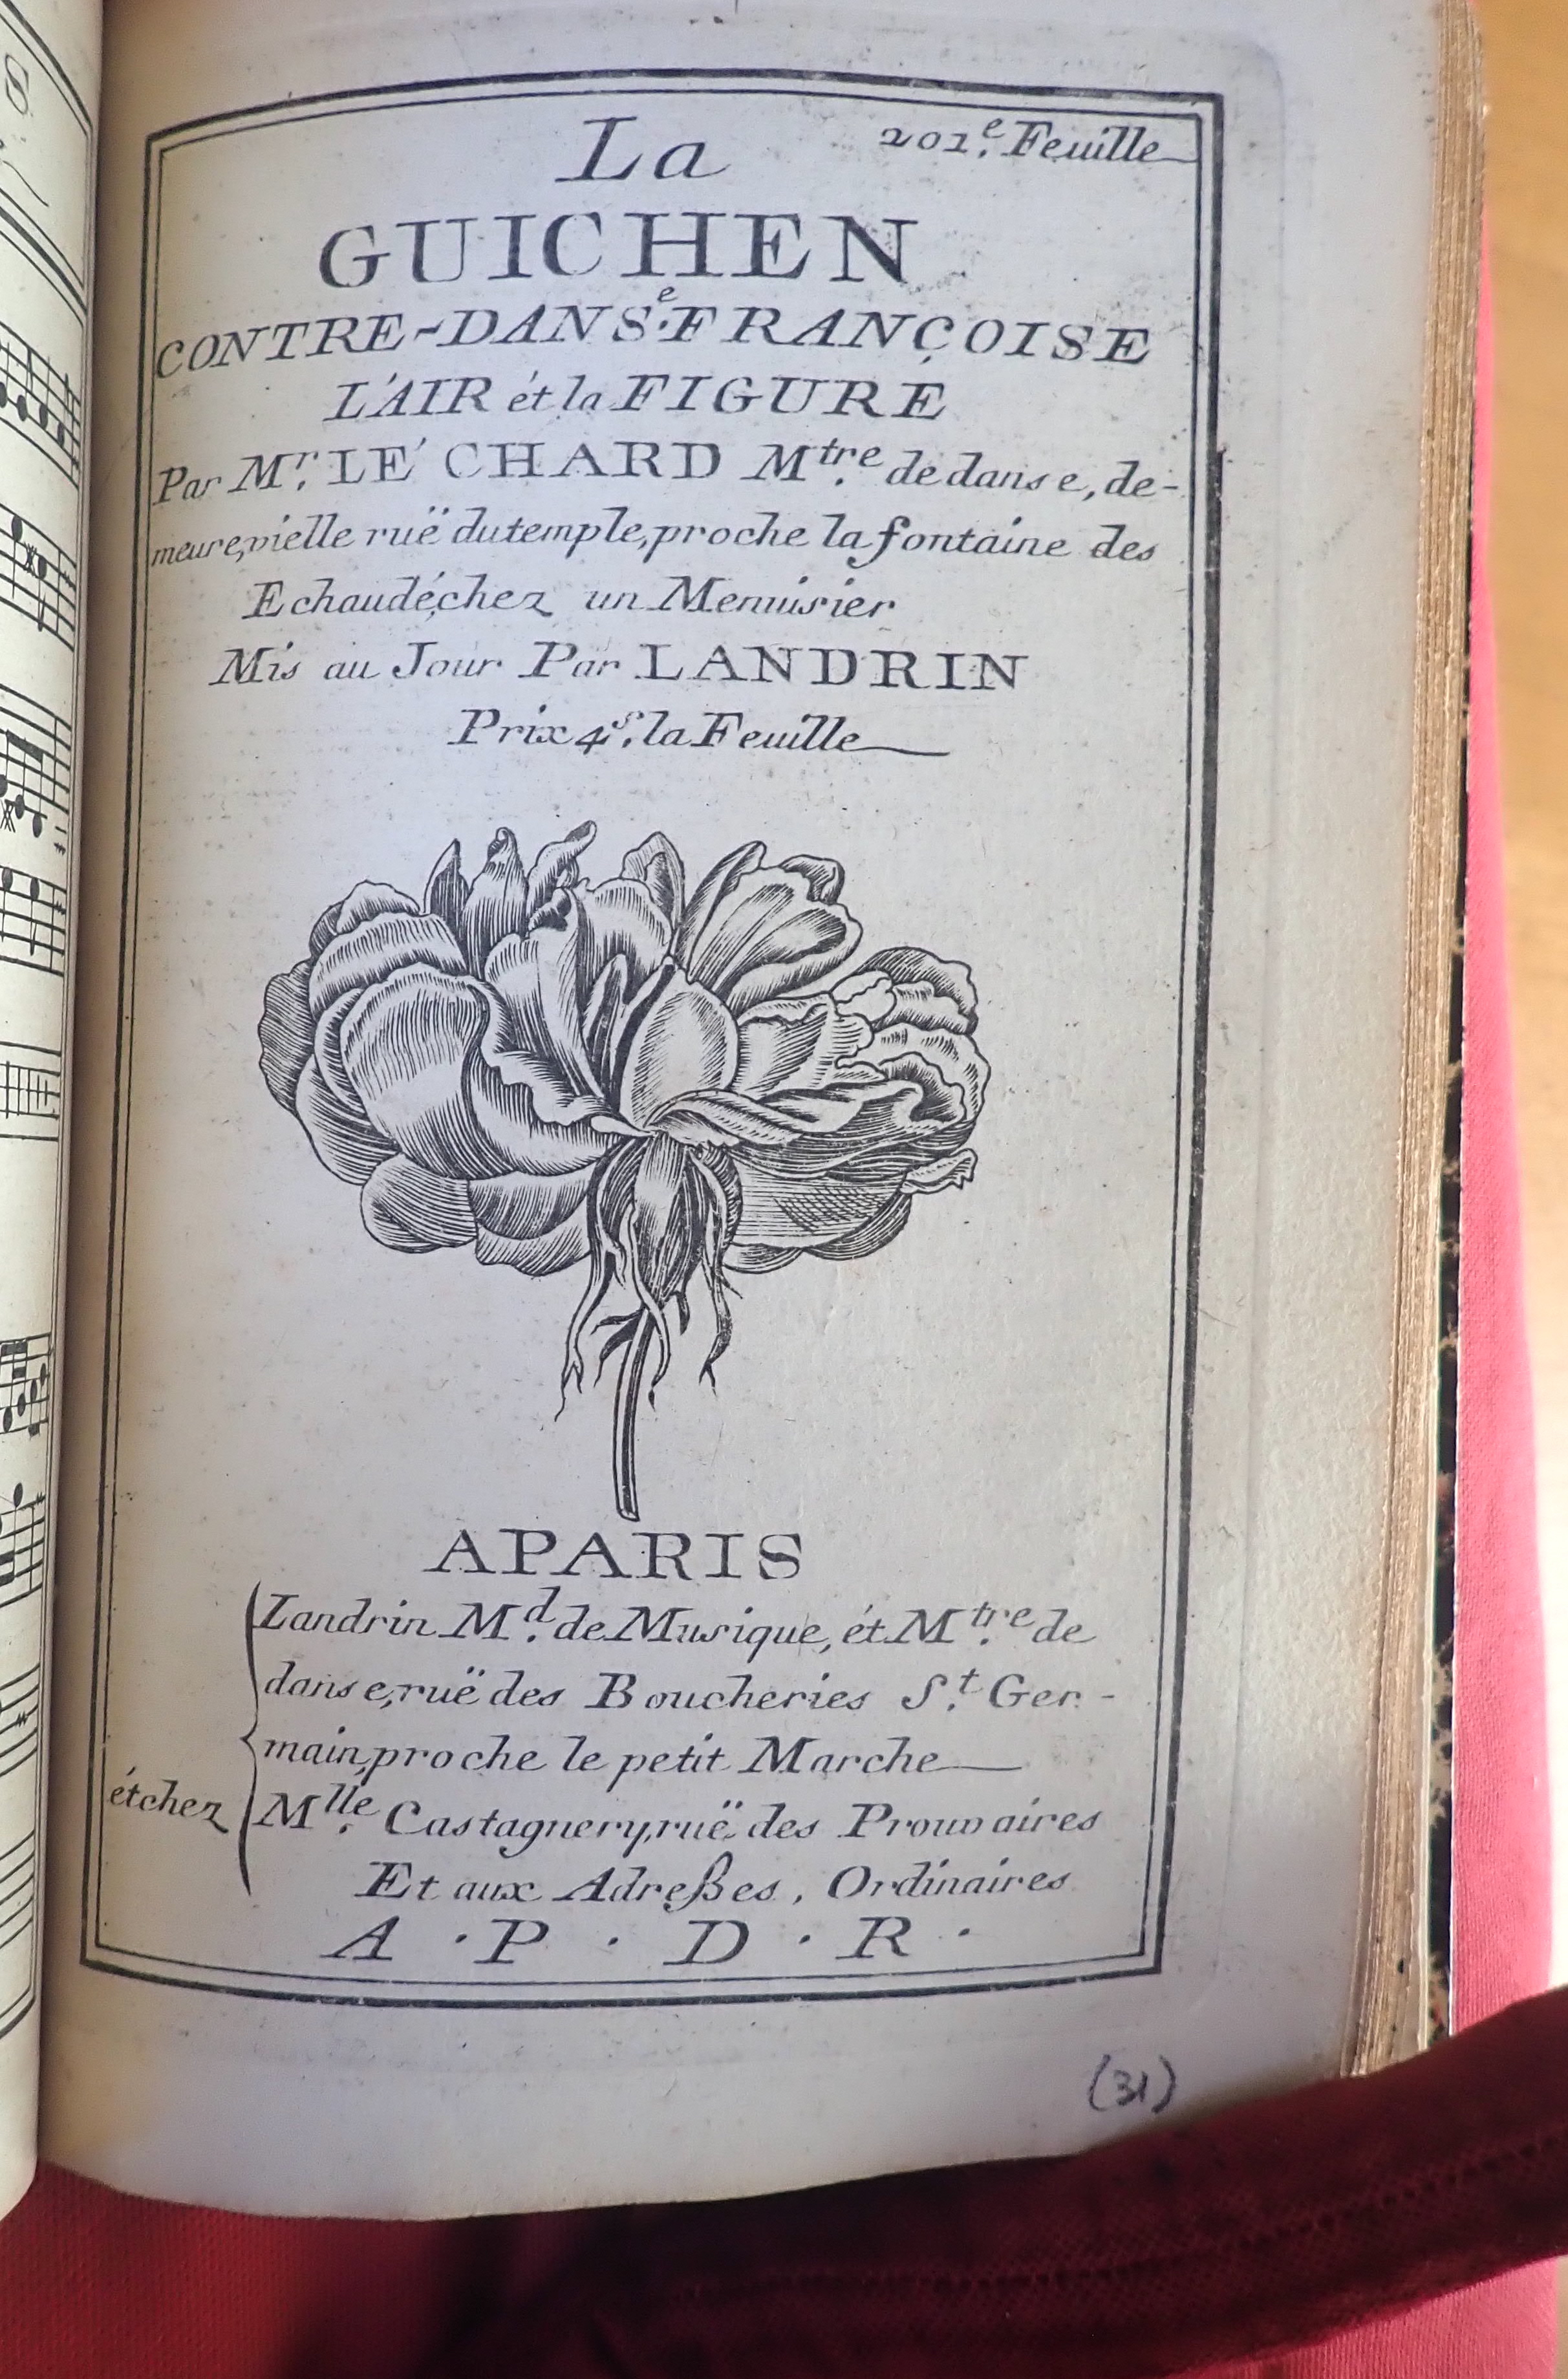 201.e Feuille
La
GUICHEN
CONTRE-DANS.e FRANÇOISE
L'AIR ét la FIGURE
Par M.r LE CHARD M.tre de danse, de-
meure, vielle ruë du temple, proche la fontaine des
Echaudé, chez un Menuisier
Mis au Jour Par LANDRIN
Prix 4.s la Feuille
A PARIS
Landrin M.d de Musique, ét M.tre de
danse, ruë des Boucheries S.t Ger-
main, proche le petit Marche
ét chez M.lle Castagnery, ruë des Prouvaires
Et aux Adreßes, Ordinaires
A . P . D . R .
(31)